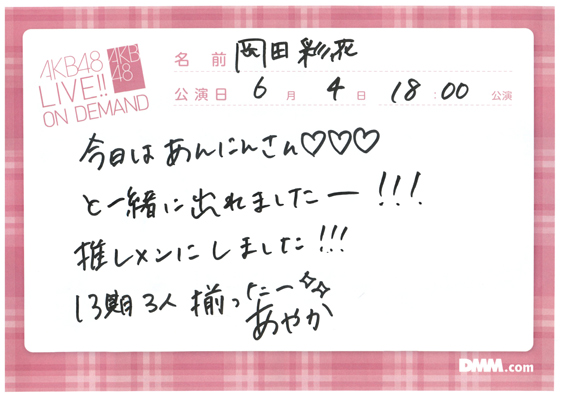 AKB48
LIVE!!
ON DEMAND
AKB
48
名前 岡田彩花
公演日 6月 4日 18:00 公演
今日はあんにんさん♡♡♡
と一緒に出れましたー!!!
推しメンにしました!!!
13期3人揃ったー
あやか
DMM.com